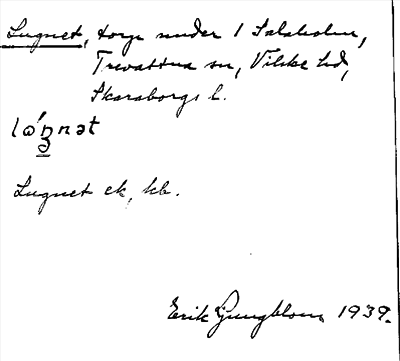 Lugnet, torp under 1 Salaholm,
Trevattna sn, Vilske hd,
Skaraborgs l.
lǫ́ŋnət
Lugnet ek, kb.
Erik Ljungblom 1939.